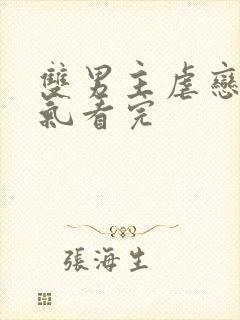 雙男主虐戀
氣看完
張海生